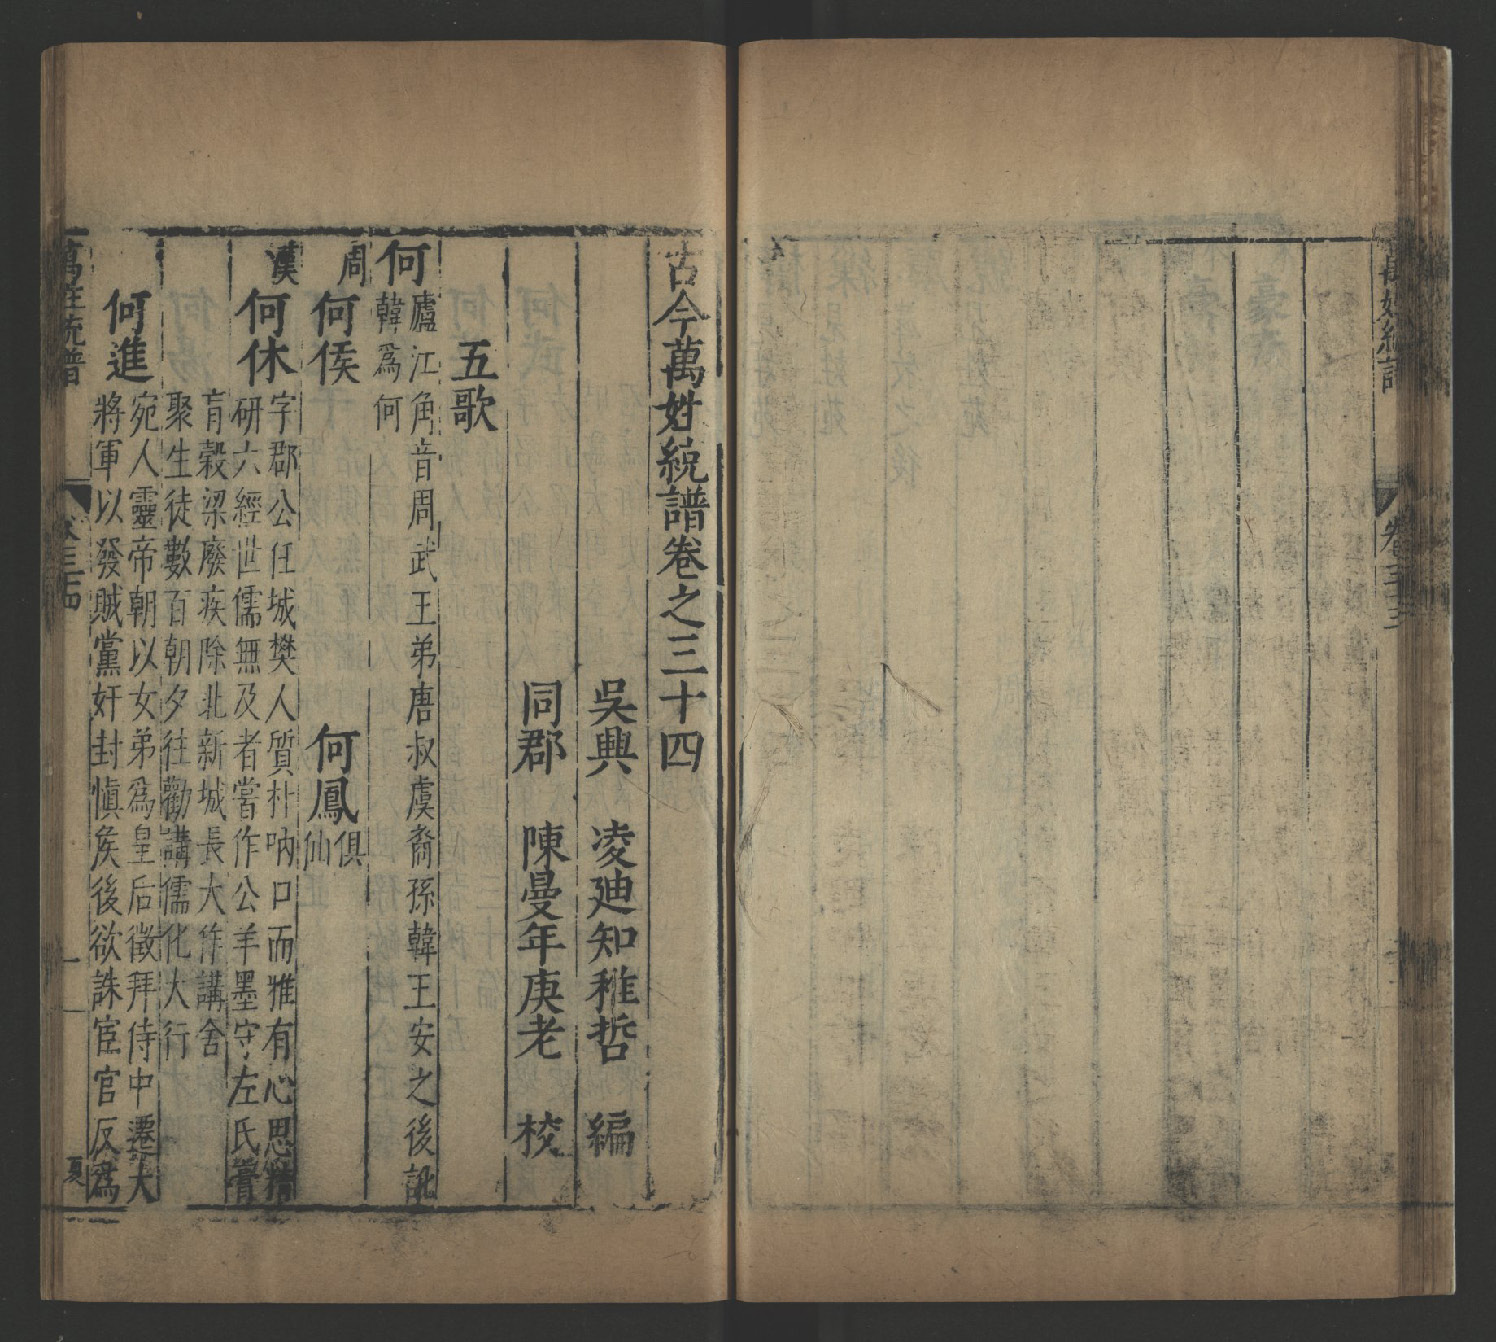 萬姓統譜
卷三十三
古今萬姓統譜卷之三十四
吳興 凌廸知稚哲 編
同郡 陳曼年庚老 校
五歌
何
廬江角音周武王弟唐叔虞裔孫韓王安之後訛
韓爲何
周
何侯
何鳳
俱
仙
漢
何休
字郡公任城樊人質朴吶口而雅有心思精
研六經世儒無及者嘗作公羊墨守左氏膏
肓穀梁廢疾除北新城長大作講舍
聚生徒數百朝夕往勸講儒化大行
何進
宛人靈帝朝以女弟爲皇后徵拜侍中遷大
將軍以發賊黨奸封愼矦後欲誅宦官反爲
萬姓統譜
卷三十四
一
夏